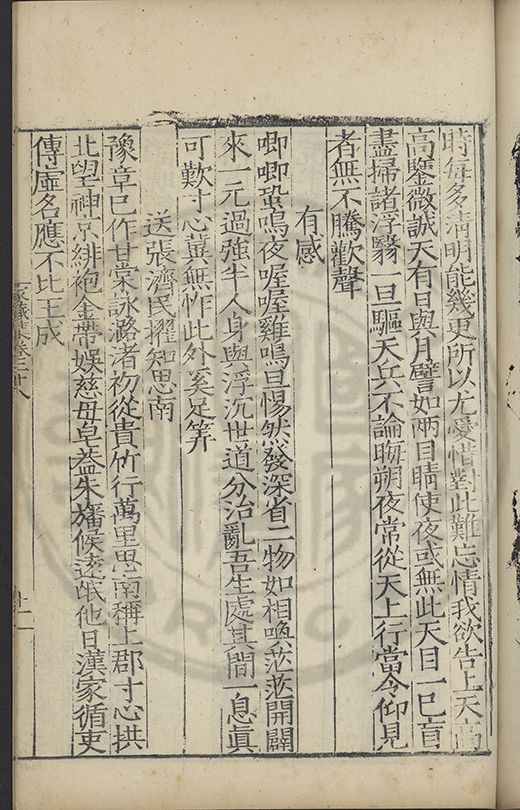 時每多清明能幾更所以尤愛惜對此難忘情我欲告上天
高鑒微誠天有日與月譬如兩目睛使夜或無此天目一已盲
盡掃諸浮翳一旦驅天兵不論晦朔夜常從天上行當令仰見
者無不騰歡聲
有感
唧唧蛩鳴夜喔喔雞鳴旦惕然發深省二物如相喚茫茫開闢
來一元過強半人身與浮沉世道分治亂吾生處其間一息真
可歎寸心莫無怍此外奚足筭
送張濟民擢知思南
豫章已作甘棠詠潞渚初從貴竹行萬里思南稱上郡寸心拱
北望神京緋袍金帶娛慈母皂蓋朱旛候遠氓他日漢家循吏
傳虛名應不比王成
家藏集卷二十八